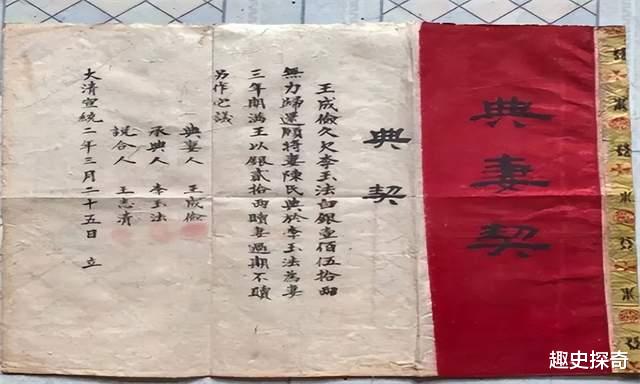 典妻契
典契
王成儉久欠李玉法白銀壹佰伍拾兩
無力歸還願將妻陳民典於李玉法為妻
三年期滿王以銀貳拾兩贖妻過期不贖
另作它議
典妻人 王成儉
承典人 李玉法
說合人 王志清
大清宣統二年三月二十五日 立
趣史探奇